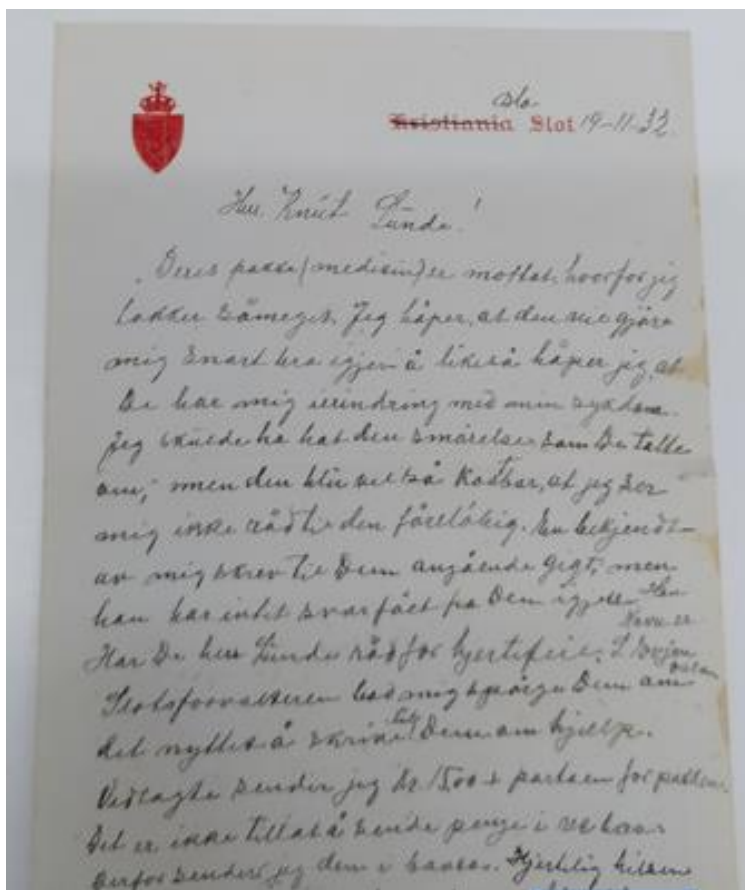 Oslo
Kristiania Slot 19-11-32.
Herr Knut Lunde!
Deres pakke (medisin) er mottat, hvorfor jeg
takker såmeget. Jeg håper, at den vil gjøre
mig snart bra igjen å likeså håper jeg, at
De har mig i erindring med min sykdom.
Jeg skulde ha hat den smørelse som De talte
om, men den blir vel så kostbar, at jeg ser
mig ikke råd til den foreløbig. En bekjendt
av mig skrev til Dem angående gigt, men
han har intet svar fået fra Dem igjen. Han
Har De herr Lunde råd for hjertefeil.
Slotsforvalteren bad mig spørge Dem om
det nyttet å skrive til Dem om hjelp.
Vedlagte sender jeg kr 15.00 + portoen for pakken
Det er ikke tillat å sende penge i
derfor sender jeg dem i Hjertlig hilsen